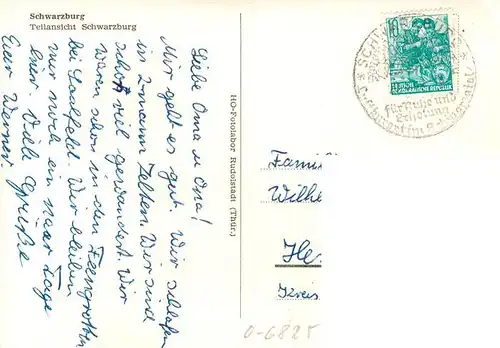 Schwarzburg
Teilansicht Schwarzburg
Liebe Oma u. Opa!
Mir geht es gut. Wir schlafen
in 2-mann Zelten. Wir sind
schon viel gewandert. Wir
waren schon in den Feengrotten
bei Saalfeld. Wir bleiben
nur noch ein paar Tage
hier. Viele Grüße
Euer Werner.
HO-Fotolabor Rudolstadt (Thür.)
10
DEUTSCHE
DEMOKRATISCHE REPUBLIK
für Ruhe und
Erholung
Famil
Wilhe
He
Kreis
0-6825